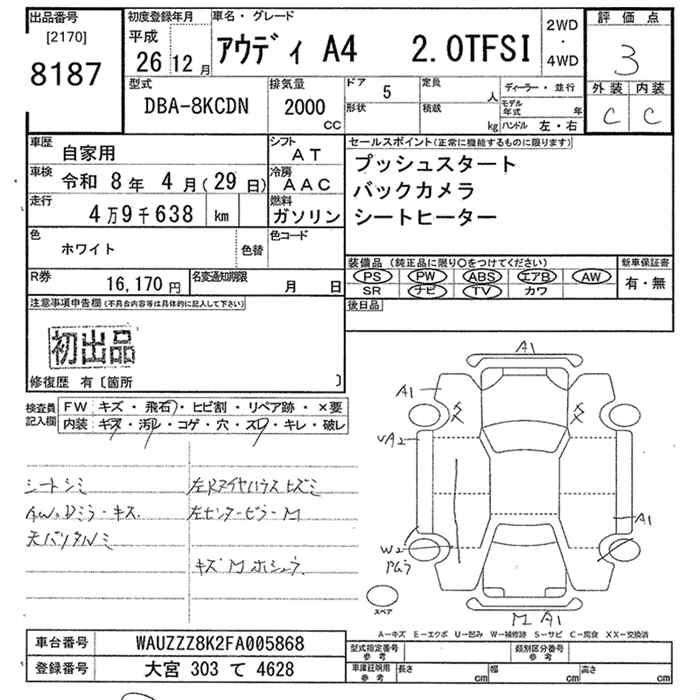 出品番号
[2170]
8187
初度登録年月
平成
26 12 月
車名・グレード
アウディ A4 2.0TFSI
2WD
・
4WD
評価点
3
外装 内装
C C
型式
DBA-8KCDN
排気量
2000
CC
ドア
5
形状
定員
人
積載
kg
ディーラー・並行
モデル年式 年
ハンドル 左・右
車歴
自家用
シフト
AT
車検
令和 8年 4月(29日)
冷房
AAC
走行
4万9千638 km
燃料
ガソリン
色
ホワイト
色替
色コード
R券
16,170円
名変通知期限
月 日
セールスポイント(正常に機能するものに限ります)
プッシュスタート
バックカメラ
シートヒーター
装備品 (純正品に限り○をつけてください)
PS PW ABS エアB AW
SR ナビ TV カワ
新車保証書
有・無
後日品
注意事項申告欄(不具合内容等は具体的に記入して下さい)
初出品
修復歴 有〔箇所 〕
検査員
記入欄
FW キズ・飛石・ヒビ割・リペア跡・×要
内装 キズ・汚レ・コゲ・穴・スレ・キレ・破レ
シートシミ
AW.Dミラーキズ.
左センターピラーM
キズMホシュウ
A1
A1
UA2
A1
W2
M A1
スペア
A-キズ E-エクボ U-凹み W-補修跡 S-サビ C-腐食 XX-交換済
車台番号 WAUZZZ8K2FA005868
登録番号 大宮 303 て 4628
型式指定番号
参考
類別区分番号
参考
車庫証明用
参考
長さ cm
幅 cm
高さ cm